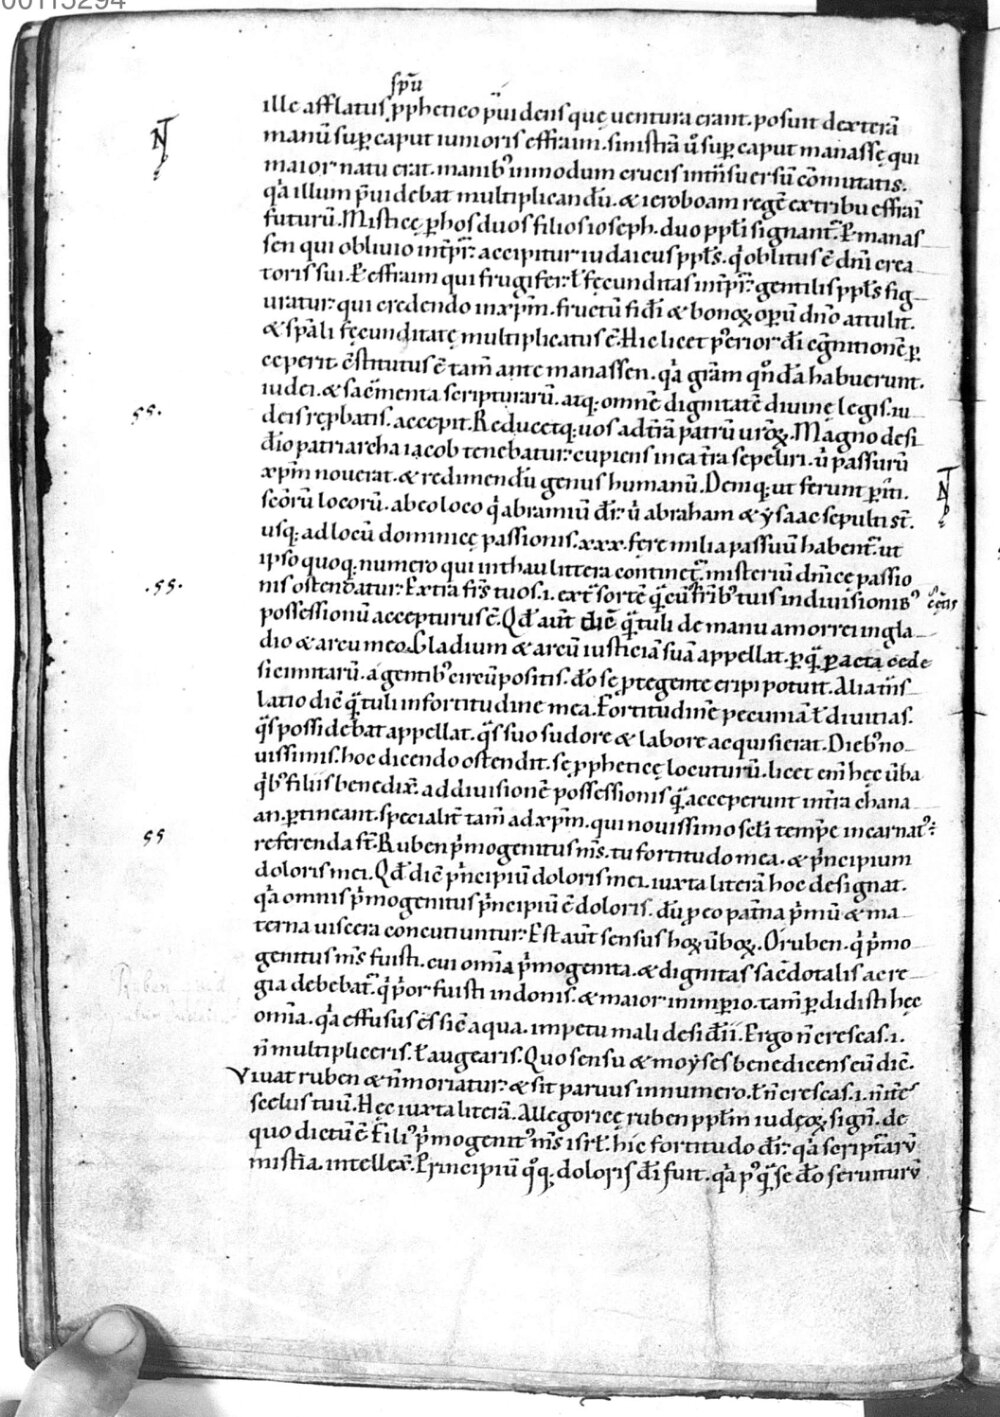 00115294
spū
ille afflatus p̱phetico p̄uidens quę uentura erant. posuit dexterā
manū suꝑ caput iunioris effraim. sinistrā ū suꝑ caput manassę qui
maior natu erat. manibꝰ in modum crucis intn̄suersū cōmutatis.
qͣa illum p̄uidebat multiplicandū. & ieroboam regē ex tribu effraī
futurū. Misticę ꝑ hos duos filios ioseph. duo pp̄li signant᷑. Ꝑ manas
sen qui obliuio int̄pr̄. accipitur iudaicus pp̄ls. qͥ oblitus ē dn̄i crea
toris sui. Ꝑ effraim qui frugifer. ł fęcunditas int̄pr̄. gentilis pp̄ls fig
uratur. qui credendo in xp̄m. fructū fidī & bonoꝝ oꝑū dn̄o attulit.
& sp̄ali fęcunditatę multiplicatus ē. Hic licet pꝰerior dī cognitionē ꝑ
ceperit. c̄stitutus ē tam̄ ante manassen. qͣa grām qͦndā habuerunt.
iudei. & sac̄menta scripturarū. atq; omnē dignitatē diuinę legis. iu
ss.
deis rep̱batis. accepit. Reducetq; uos ad t̄rā patrū ur̄oꝝ. Magno desi
đio patriarcha iacob tenebatur. cupiens in ea t̄ra sepeliri. u̇ passurū
xp̄m nouerat. & redimendū genus humanū. Deniq; ut ferunt ꝑiti.
scōrū locorū. ab eo loco qͥ abramiū dr̄. u̇ abraham & ẏsaac sepulti st̄.
usq; ad locū dominicę passionis. xxx. fere milia passuū habent᷑. ut
ipso quoq; numero qui in thau littera continet᷑. misteriū dn̄ice passio
.ss.
nis ostendatur. Extra fr̄s tuos. i. ext̄ sortē quā cū fr̄ibꝰ tuis in diuisionibꝰ
possessionū accepturus ē. Qđ aut̄ dic̄ quā tuli de manu amorrei in gla
dio & arcu meo. Gladium & arcū iusticiā suā appellat. ꝑ quā ꝑacta cede
sicimitarū. a gentibꝰ circū positis. dō se p̱tegente eripi potuit. Alia tn̄s
latio dic̄ quā tuli in fortitudine mea. Fortitudinē pecuniā ł diuitias.
qͣs possidebat appellat. qͣs suo sudore & labore acquisierat. Diebꝰ no
uissimis. hoc dicendo ostendit. sę p̱phetięę locuturū. licet eni hęc ūba
qͥbꝰ filiis benedix̄. ad diuisionē possessionis quā acceperunt in t̄ra chana
an. ꝑtineant. specialit̄ tam̄ ad xp̄m. qui nouissimo scl̄i temp̄e incarnatꝰ
ss
referenda st̄. Ruben pͥmogenitus m̄s. tu fortitudo mea. & pͥncipium
doloris mei. Qđ dic̄ pͥncipiū doloris mei. iuxta literā hoc designat.
qͣa omnis pͥmogenitus pͥncipiū ē doloris. dū p̱ eo pat̄na pͥmū & ma
terna uiscera concutiuntur. Est aut̄ sensus hoꝝ ūboꝝ. O ruben. qͥ pͥmo
genitus m̄s fuisti. cui om̄ia pͥmogenita. & dignitas sac̄dotalis ac re
gia debebat᷑. qͥ pͥor fuisti in donis. & maior in imꝑio. tam̄ ꝑdidisti hęc
om̄ia. qͣa effusus es sic̄ aqua. impetu mali desiđii. Ergo n̄ crescas. i.
n̄ multipliceris. ł augearis. Quo sensu & moẏses benedicens eū dic̄.
Viuat ruben & n̄ moriatur. & sit paruus in numero. ł n̄ crescas. i. n̄ it̄es
scelus tuū. Hęc iuxta literā. Allegoricę ruben pp̄lm iudęoꝝ. sign̄. de
quo dictū ē. Filiꝰ pͥmogenitꝰ m̄s isrł. hic fortitudo dr̄. qͣa scripturarū
mist̄ia. intellex̄. Principiū qͦq; doloris dī fuit. qͣa pꝰquā se dō seruiturū